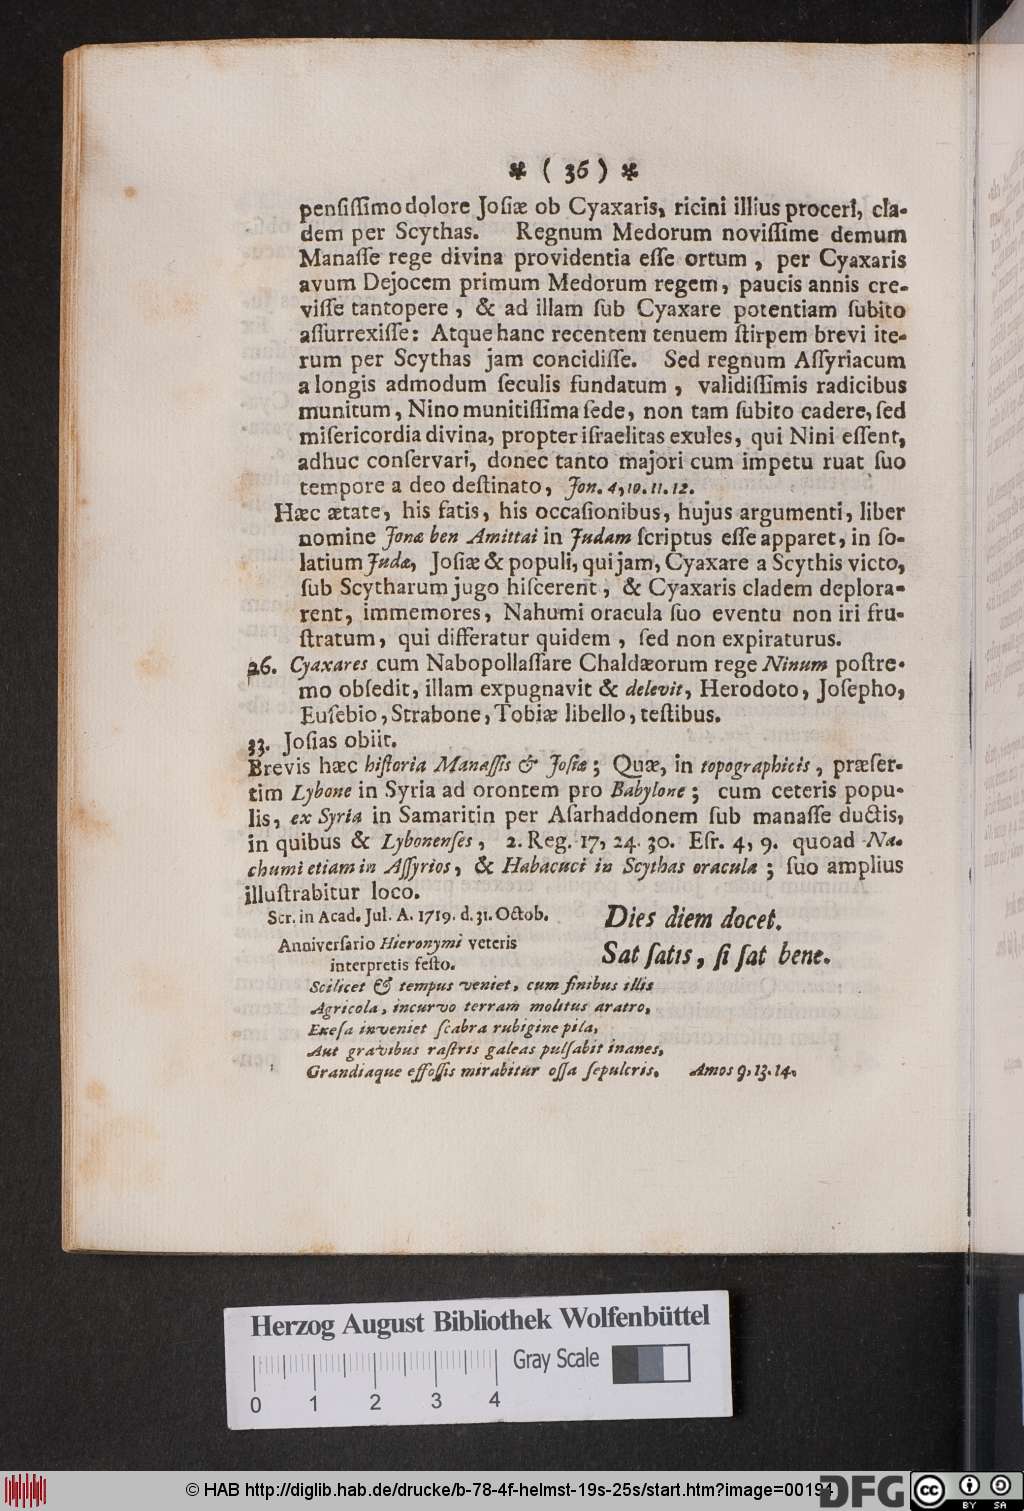 * ( 36 ) *
pensissimo dolore Josiæ ob Cyaxaris, ricini illius proceri, cla-
dem per Scythas. Regnum Medorum novissime demum
Manasse rege divina providentia esse ortum , per Cyaxaris
avum Dejocem primum Medorum regem, paucis annis cre-
visse tantopere , & ad illam sub Cyaxare potentiam subito
assurrexisse: Atque hanc recentem tenuem stirpem brevi ite-
rum per Scythas jam concidisse. Sed regnum Assyriacum
a longis admodum seculis fundatum , validissimis radicibus
munitum, Nino munitissima sede, non tam subito cadere, sed
misericordia divina, propter israelitas exules, qui Nini essent,
adhuc conservari, donec tanto majori cum impetu ruat suo
tempore a deo destinato, Jon. 4, 10. 11. 12.
Hæc ætate, his fatis, his occasionibus, hujus argumenti, liber
nomine Jonæ ben Amittai in Judam scriptus esse apparet, in so-
latium Judæ, Josiæ & populi, qui jam, Cyaxare a Scythis victo,
sub Scytharum jugo hiscerent, & Cyaxaris cladem deplora-
rent, immemores, Nahumi oracula suo eventu non iri fru-
stratum, qui differatur quidem , sed non expiraturus.
26. Cyaxares cum Nabopollassare Chaldæorum rege Ninum postre-
mo obsedit, illam expugnavit & delevit, Herodoto, Josepho,
Eusebio, Strabone, Tobiæ libello, testibus.
33. Josias obiit.
Brevis hæc historia Manassis & Josiæ; Quæ, in topographicis , præser-
tim Lybone in Syria ad orontem pro Babylone ; cum ceteris popu-
lis, ex Syria in Samaritin per Asarhaddonem sub manasse ductis,
in quibus & Lybonenses , 2. Reg. 17, 24. 30. Esr. 4, 9. quoad Na-
chumi etiam in Assyrios, & Habacuci in Scythas oracula ; suo amplius
illustrabitur loco.
Scr. in Acad. Jul. A. 1719. d. 31. Octob.
Anniversario Hieronymi veteris
interpretis festo.
Dies diem docet.
Sat satis, si sat bene.
Scilicet & tempus veniet, cum finibus illis
Agricola, incurvo terram molitus aratro,
Exesa inveniet scabra rubigine pila,
Aut gravibus rastris galeas pulsabit inanes,
Grandiaque effossis mirabitur ossa sepulcris. Amos 9, 13. 14.
Herzog August Bibliothek Wolfenbüttel
Gray Scale
0 1 2 3 4
© HAB http://diglib.hab.de/drucke/b-78-4f-helmst-19s-25s/start.htm?image=00194
DFG
cc BY SA